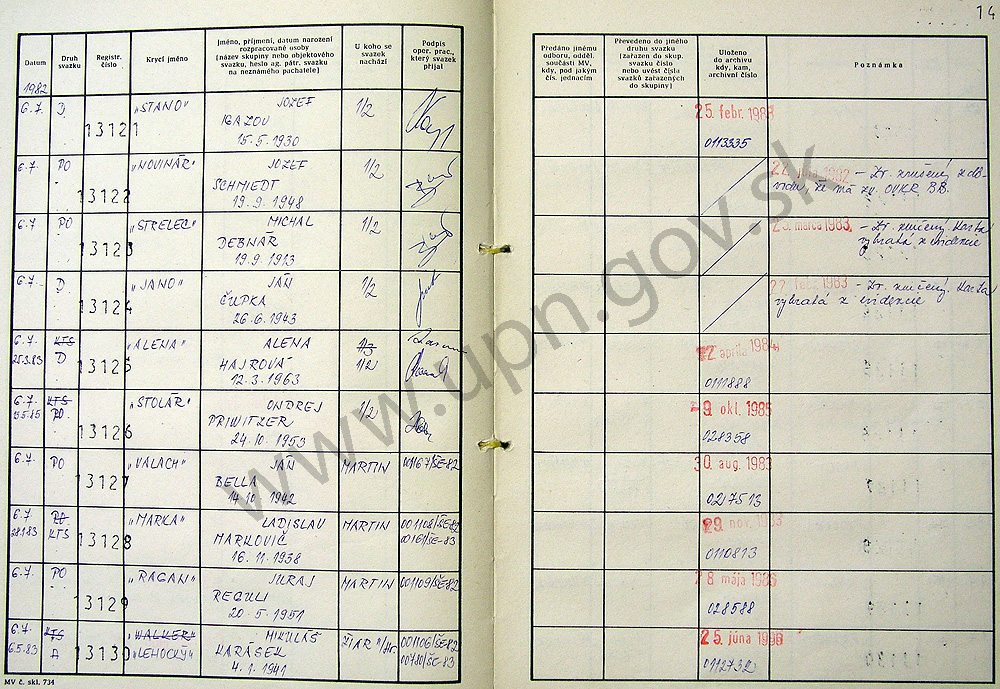 14
Datum
Druh svazku
Registr. číslo
Krycí jméno
Jméno, příjmení, datum narození rozpracované osoby
(název skupiny nebo objektového svazku, heslo ag. pátr. svazku na neznámého pachatele)
U koho se svazek nachází
Podpis oper. prac., který svazek přijal
Předáno jinému odboru, odděl. součásti MV, kdy, pod jakým čís. jednacím
Převedeno do jiného druhu svazku (zařazen do skup. svazku číslo nebo uvést čísla svazků zařazených do skupiny)
Uloženo do archivu kdy, kam, archivní číslo
Poznámka
1982
6.7. D 13121 "STANO" JOZEF 1/2
IGAZOV
15.5.1930
25. febr. 1988
0113335
6.7. PO 13122 "NOVINÁR" JOZEF 1/2
SCHMIEDT
19.9.1948
1982 - Zv. zrušený
6.7 PO 13123 "STRELEC" MICHAL 1/2
DEBNÁR
19.9.1913
marca 1983, - Zv. zrušený. Karta
vybratá z evidencie
6.7. D 13124 "JANO" JÁN 1/2
ČUPKA
26.6.1943
1983 - Zv. zrušený. Karta
vybratá z evidencie
6.7. KTS 13125 "ALENA" ALENA 1/3
25.3.83 D HAJROVÁ 1/2
12.3.1963
12 apríla 1984,
0111888
6.7. KTS 13126 "STOLÁR" ONDREJ 1/2
PO PRIWITZER
24.10.1953
-9. okt. 1985
028358
6.7. PO 13127 "VALACH" JÁN MARTIN 001107/ŠE-82
BELLA
14.10.1942
30. aug. 1983
0217513
6.7 PO 13128 "MARKA" LADISLAV MARTIN 001108/ŠE-82
28.1.83 KTS MARKOVIČ 00161/ŠE-83
16.11.1938
29. nov. 1983
0110813
6.7. PO 13129 "RAGAN" JURAJ MARTIN 001109/ŠE-82
REGULI
20.5.1951
28 mája 1986
028588
6.7 KTS 13130 "WALKER" MIKULÁŠ ŽIAR n/Hr. 001106/ŠE-82
6.5.83 A "LEHOCKÝ" KARÁSEK 00780/ŠE-83
4.1.1941
25. júna
0112732
MV č. skl. 734
www.upn.gov.sk